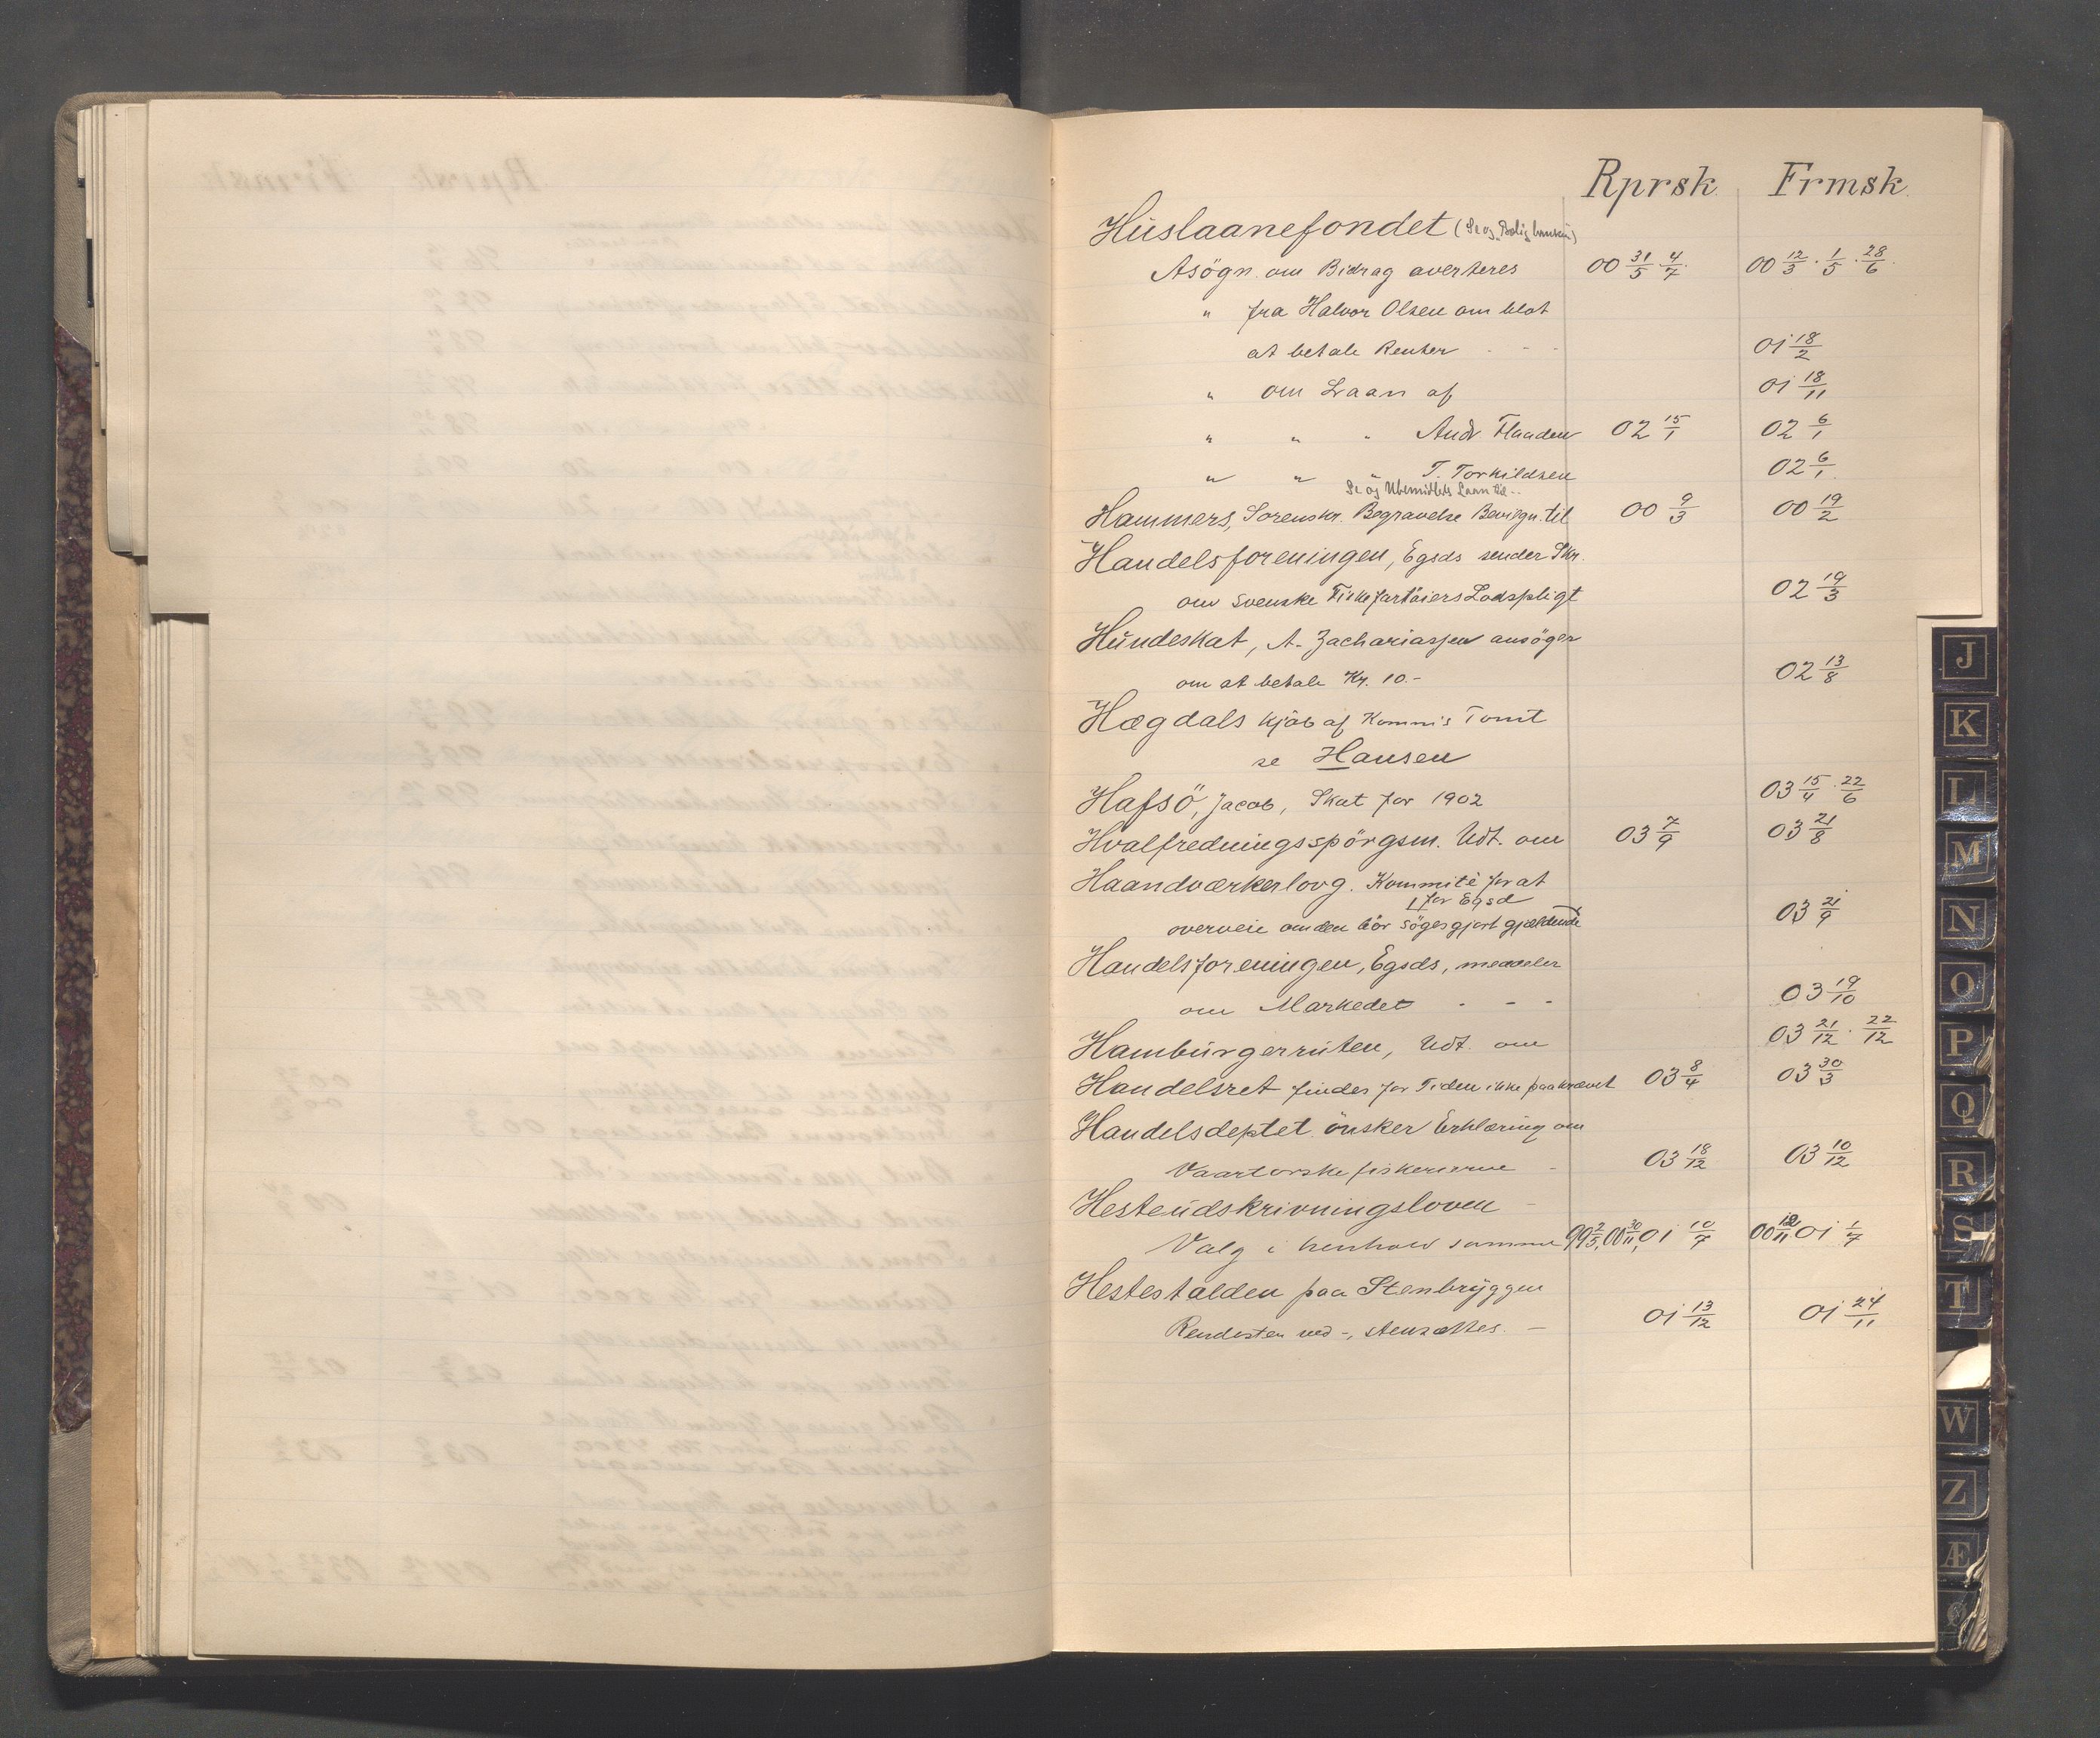 Rprsk. Frmsk.
Huslaanefondet (Se og Boligbanken)
Asögn. om Bidrag averteres 00 31/5 · 4/7 · 00 12/3 · 1/5 · 28/6 ·
" fra Halvor Olsen om blot
at betale Renter - - - 01 18/2
" om Laan af 01 18/11
" " " Andr Haaden 02 15/1 02 6/1
" " " T. Torkildsen 02 6/1
Se og Ubemidlets Laan til -
Hammers, Sorenskr. Begravelse Bevilgn. til 00 9/3 00 19/2
Handelsforeningen, Egsds sender Skr.
om svenske Fiskefartöiers Lodspligt 02 19/3
Hundeskat, A. Zachariassen ansöger
om at betale Kr. 10.- 02 13/8
Hægdals kjöb af Kommis Tomt
se Hansen
Hafsö, Jacob, Skat for 1902 03 15/4 · 22/6
Hvalfredningsspörgsm. Udt. om 03 7/9 03 21/8
Haandværkerlovg. Kommité for at
for Egsd
overveie om den bör söges gjort gjældende 03 21/9
Handelsforeningen, Egsds, meddeler
om Markedet - - - 03 19/10
Hamburgerruten, Udt. om 03 21/12 · 22/12
Handelsret findes for Tiden ikke paakrævet 03 8/4 03 30/3
Handelsdeptet önsker Erklæring om
Vaartorskefiskerierne - 03 18/12 03 10/12
Hesteudskrivningsloven -
Valg i henhold samme 99 2/5, 00 30/11, 01 10/7 00 12/11 01 1/7
Hestestalden paa Stenbryggen
Rendesten ved -, stensættes. - 01 13/12 01 24/11
J
K
L
M
N
O
P
Q
R
S
T
W
Z
Æ
Ø